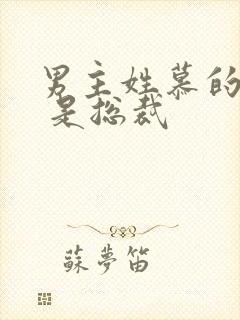 男主姓慕的
是总裁
蘇夢笛